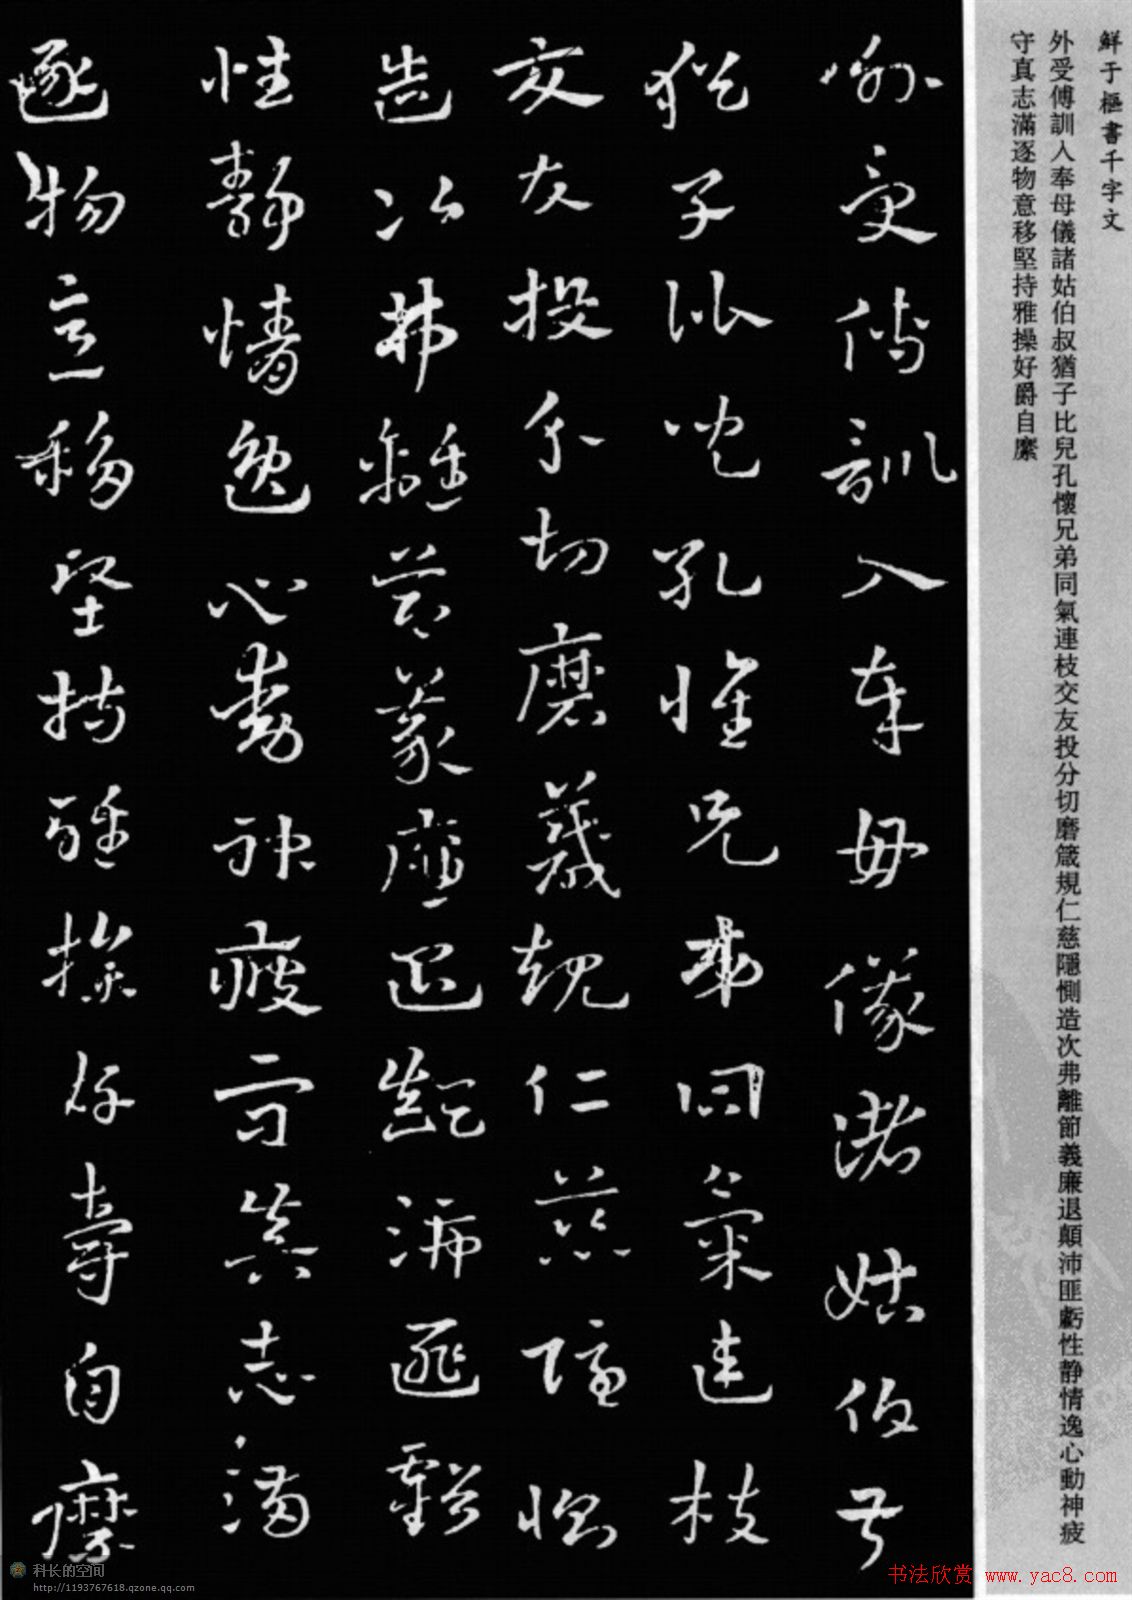 鮮于樞書千字文
外受傅訓入奉母儀諸姑伯叔猶子比兒孔懷兄弟同氣連枝交友投分切磨箴規仁慈隱惻造次弗離節義廉退顛沛匪虧性静情逸心動神疲
守真志滿逐物意移堅持雅操好爵自縻
外受傅訓入奉母儀諸姑伯叔
猶子比兒孔懷兄弟同氣連枝
交友投分切磨箴規仁慈隱惻
造次弗離節義廉退顛沛匪虧
性静情逸心動神疲守真志滿
逐物意移堅持雅操好爵自縻
科长的空间
http://1193767618.qzone.qq.com
书法欣赏 www.yac8.com